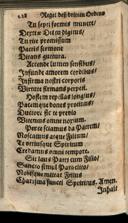 Regel deß dritten Ordens
Tu septiformis munere,
Dextræ Dei tu digitus,
Tu rite promissum
Patris sermone
Ditans guttura.
Accende lumen sensibus,
Infunde amorem cordibus,
Infirma nostri corporis
Virtute firmans perpeti.
Hostem repellas longius,
Pacemque dones protinus,
Ductore sic te prævio
Vitemus omne noxium.
Per te sciamus da Patrem,
Noscamus atque Filium,
Te utriusque Spiritum
Credamus omni tempore.
Sit laus Patri cum Filio,
Sancto simul Paracleto,
Nobisque mittat Filius
Charisma sancti Spiritus, Amen.